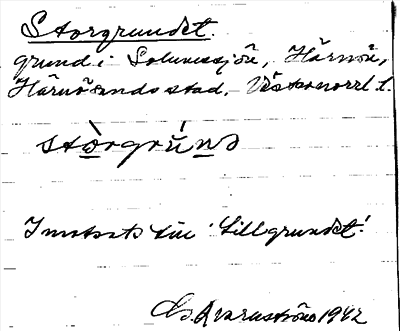 Storgrundet.
grund i Solumssjön, Härnön,
Härnösands stad, Västernorrl. l.
stòrgrún̲d
Motsats till 'Lillgrundet'.
Kvarnström 1942